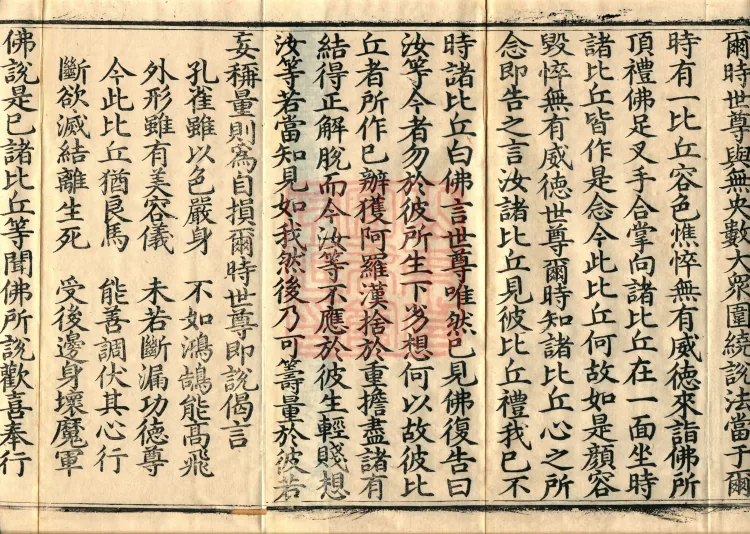 爾時世尊與無央數大衆圍繞說法當于爾
時有一比丘容色憔悴無有威德來詣佛所
頂禮佛足叉手合掌向諸比丘在一面坐時
諸比丘皆作是念今此比丘何故如是顏容
毀悴無有威德世尊爾時知諸比丘心之所
念即告之言汝諸比丘見彼比丘禮我已不
時諸比丘白佛言世尊唯然已見佛復告曰
汝等今者勿於彼所生下劣想何以故彼比
丘者所作已辦獲阿羅漢捨於重擔盡諸有
結得正解脫而今汝等不應於彼生輕賤想
汝等若當知見如我然後乃可籌量於彼若
妄稱量則爲自損爾時世尊即說偈言
孔雀雖以色嚴身　不如鴻鵠能高飛
外形雖有美容儀　未若斷漏功德尊
今此比丘猶良馬　能善調伏其心行
斷欲滅結離生死　受後邊身壞魔軍
佛說是已諸比丘等聞佛所說歡喜奉行